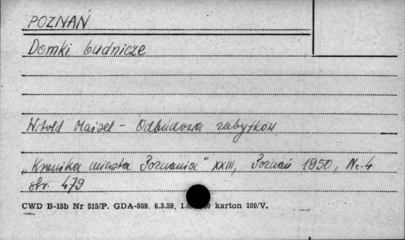 POZNAŃ
Domki budnicze
Witold Maisel - Odbudowa zabytków
"Kronika miasta Poznania" XXIII, Poznań 1950, Nr. 4
str. 479
CWD B-15b Nr 515/P. GDA-809. 6.3.59, karton 180/V.